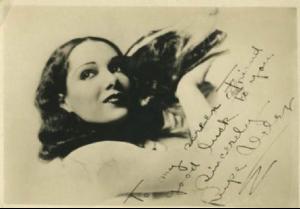 To my screen friend
good luck to you
Sincerely
Lupe Velez